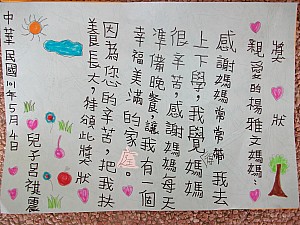 獎狀
親愛的楊雅文媽媽：
感謝媽媽常常帶我去
上下學，我覺得媽媽
很辛苦，感謝媽媽每天
準備晚餐，讓我有一個
幸福美滿的家庭。
因為您的辛苦，把我扶
養長大，特頒此獎狀
兒子呂維震
中華民國101年5月4日